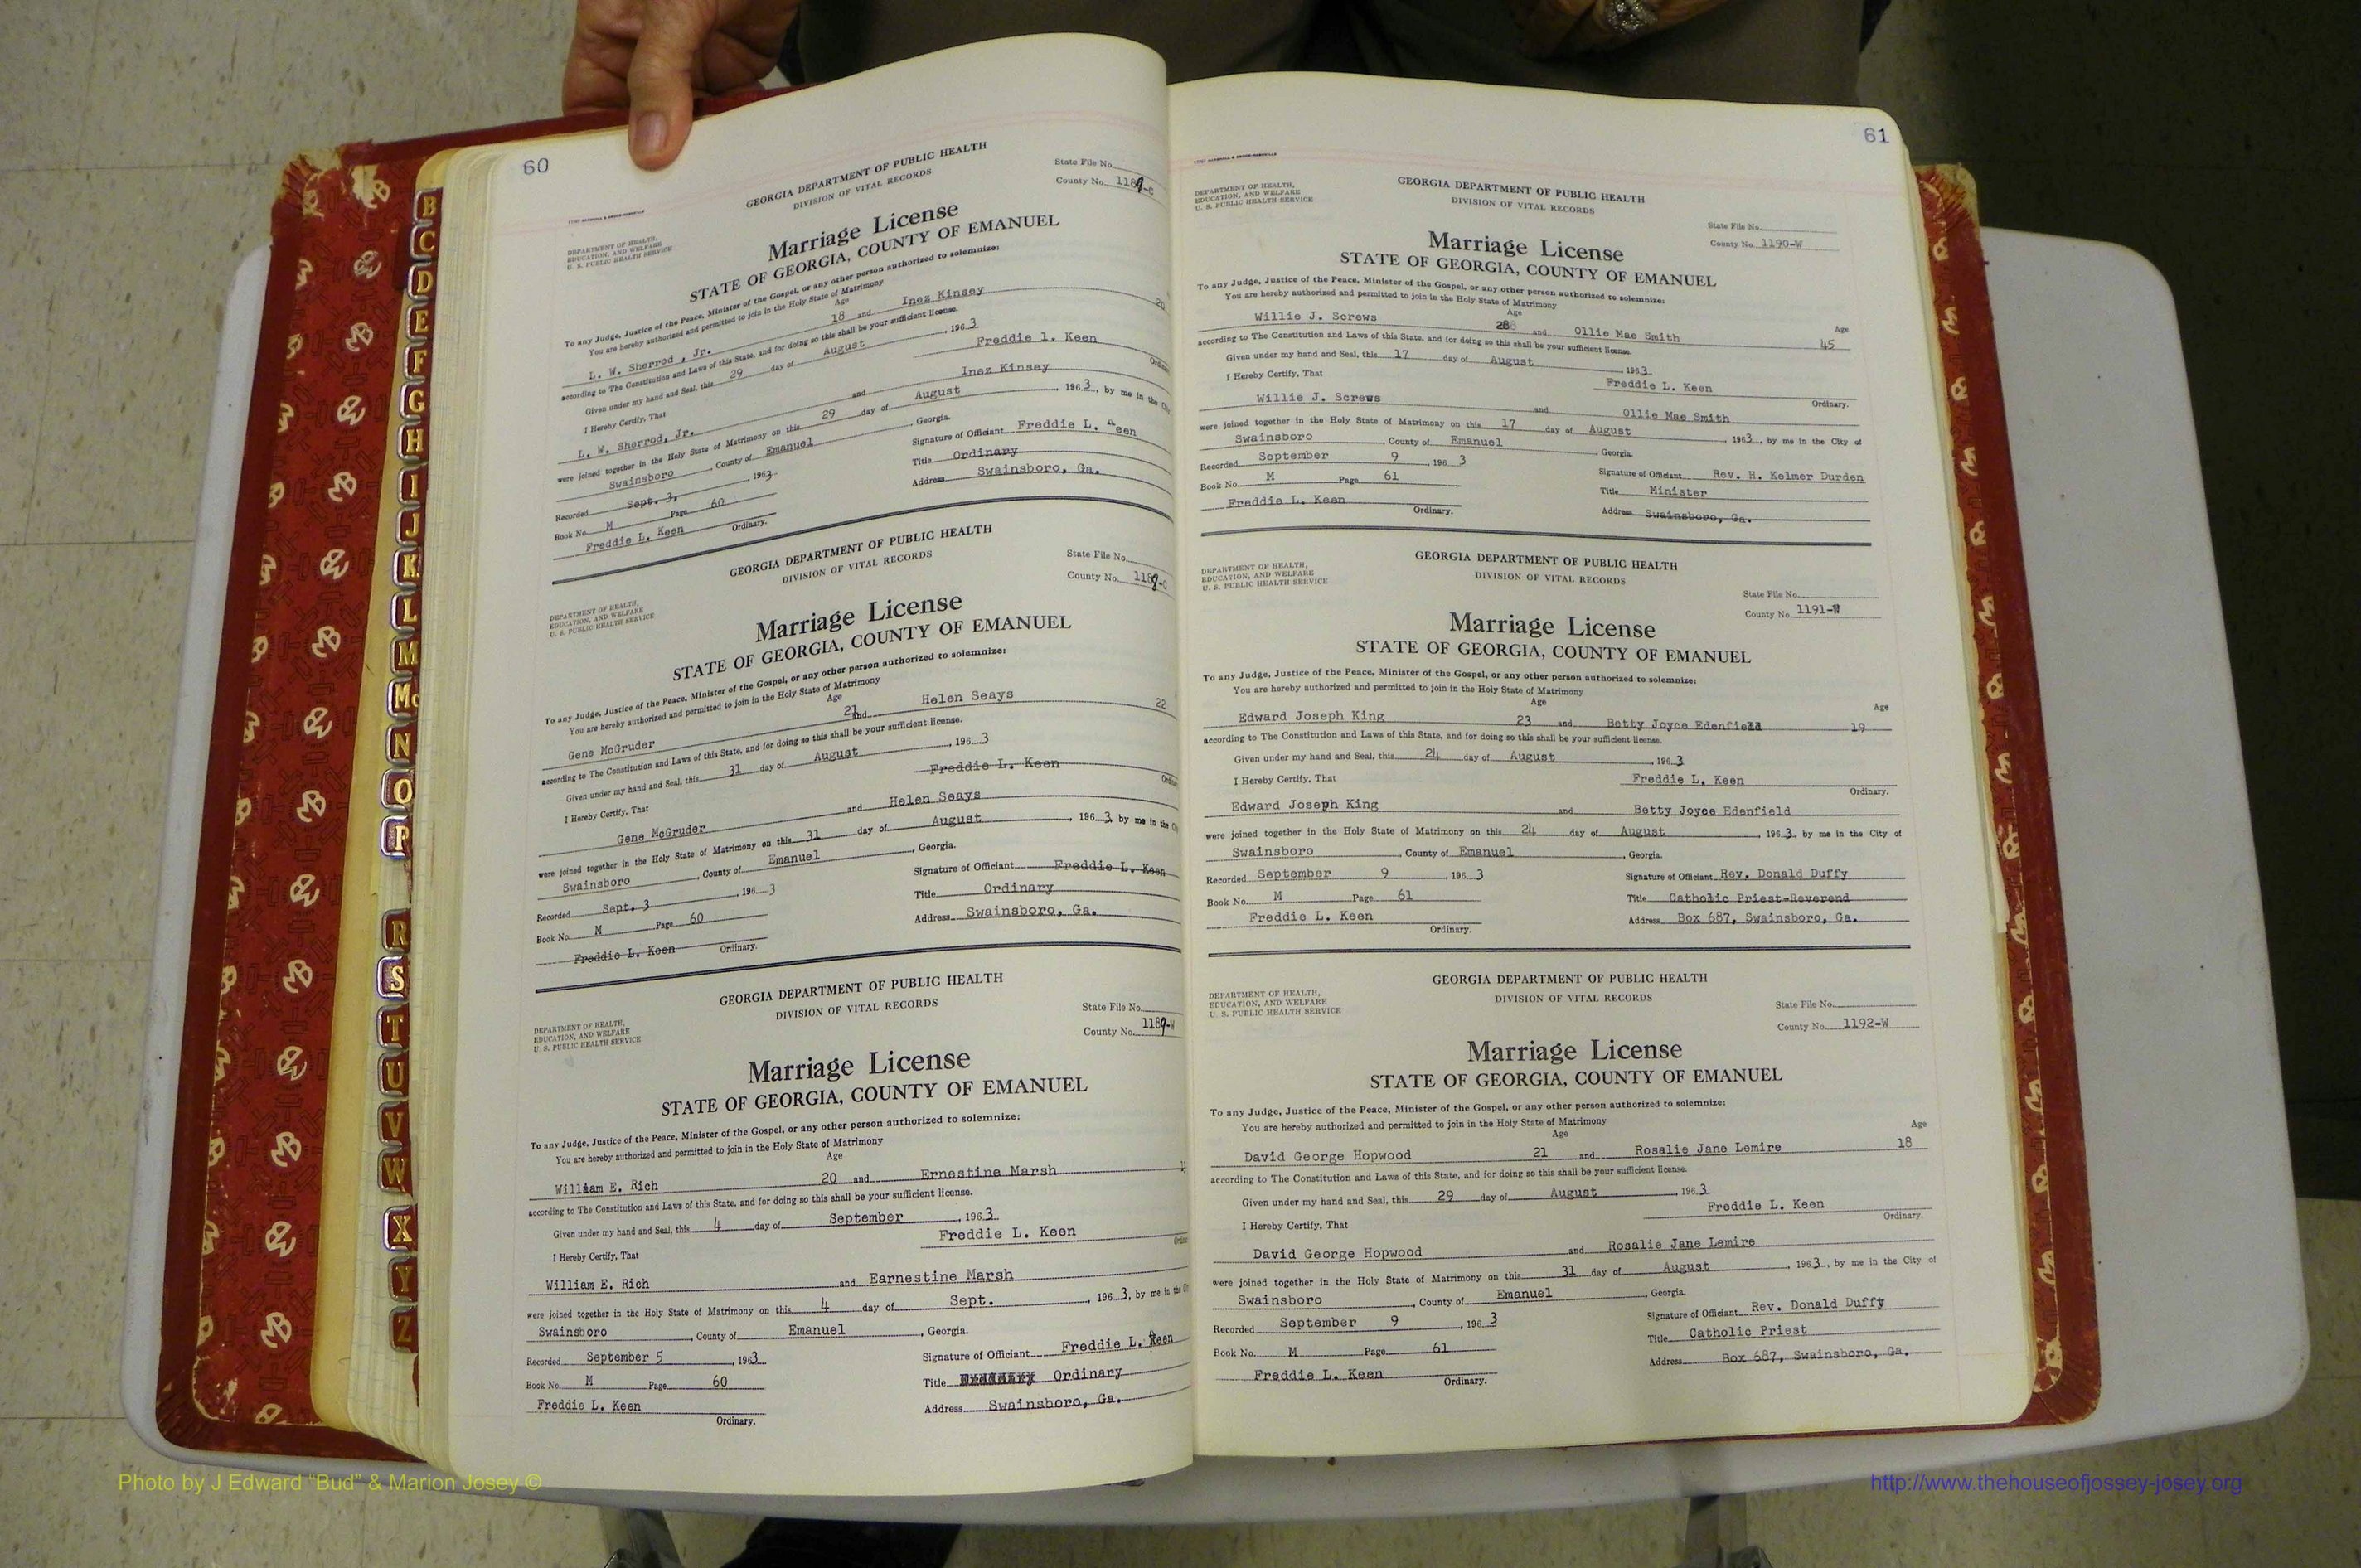 B
C
D
E
F
G
H
I
J
K
L
M
Mc
N
O
P
R
S
T
U
V
W
X
Y
Z
60
GEORGIA DEPARTMENT OF PUBLIC HEALTH
DIVISION OF VITAL RECORDS
State File No.
County No. 1189-C
DEPARTMENT OF HEALTH,
EDUCATION, AND WELFARE
U. S. PUBLIC HEALTH SERVICE
Marriage License
STATE OF GEORGIA, COUNTY OF EMANUEL
To any Judge, Justice of the Peace, Minister of the Gospel, or any other person authorized to solemnize:
You are hereby authorized and permitted to join in the Holy State of Matrimony
Age
L. W. Sherrod , Jr. 18 and Inez Kinsey
according to The Constitution and Laws of this State, and for doing so this shall be your sufficient license.
Given under my hand and Seal, this 29 day of August , 1963
Freddie l. Keen
I Hereby Certify, That
L. W. Sherrod, Jr. and Inez Kinsey
were joined together in the Holy State of Matrimony on this 29 day of August , 1963, by me in the
Swainsboro , County of Emanuel , Georgia.
Recorded Sept. 3, , 1963
Signature of Officiant Freddie L. Keen
Book No. M Page 60
Title Ordinary
Freddie L. Keen
Address Swainsboro, Ga.
Ordinary.
GEORGIA DEPARTMENT OF PUBLIC HEALTH
DIVISION OF VITAL RECORDS
State File No.
County No. 1189-C
DEPARTMENT OF HEALTH,
EDUCATION, AND WELFARE
U. S. PUBLIC HEALTH SERVICE
Marriage License
STATE OF GEORGIA, COUNTY OF EMANUEL
To any Judge, Justice of the Peace, Minister of the Gospel, or any other person authorized to solemnize:
You are hereby authorized and permitted to join in the Holy State of Matrimony
Age
Gene McGruder 21 and Helen Seays 22
according to The Constitution and Laws of this State, and for doing so this shall be your sufficient license.
Given under my hand and Seal, this 31 day of August , 1963
Freddie L. Keen
I Hereby Certify, That
Gene McGruder and Helen Seays
were joined together in the Holy State of Matrimony on this 31 day of August , 1963, by me in the
Swainsboro , County of Emanuel , Georgia.
Recorded Sept. 3 , 1963
Signature of Officiant Freddie L. Keen
Book No. M Page 60
Title Ordinary
Freddie L. Keen
Address Swainsboro, Ga.
Ordinary.
GEORGIA DEPARTMENT OF PUBLIC HEALTH
DIVISION OF VITAL RECORDS
State File No.
County No. 1189-W
DEPARTMENT OF HEALTH,
EDUCATION, AND WELFARE
U. S. PUBLIC HEALTH SERVICE
Marriage License
STATE OF GEORGIA, COUNTY OF EMANUEL
To any Judge, Justice of the Peace, Minister of the Gospel, or any other person authorized to solemnize:
You are hereby authorized and permitted to join in the Holy State of Matrimony
Age
William E. Rich 20 and Ernestine Marsh
according to The Constitution and Laws of this State, and for doing so this shall be your sufficient license.
Given under my hand and Seal, this 4 day of September , 1963
Freddie L. Keen
I Hereby Certify, That
William E. Rich and Earnestine Marsh
were joined together in the Holy State of Matrimony on this 4 day of Sept. , 1963, by me in the
Swainsboro , County of Emanuel , Georgia.
Recorded September 5 , 1963
Signature of Officiant Freddie L. Keen
Book No. M Page 60
Title Ordinary
Freddie L. Keen
Address Swainsboro, Ga.
Ordinary.
61
GEORGIA DEPARTMENT OF PUBLIC HEALTH
DIVISION OF VITAL RECORDS
DEPARTMENT OF HEALTH,
EDUCATION, AND WELFARE
U. S. PUBLIC HEALTH SERVICE
State File No.
County No. 1190-W
Marriage License
STATE OF GEORGIA, COUNTY OF EMANUEL
To any Judge, Justice of the Peace, Minister of the Gospel, or any other person authorized to solemnize:
You are hereby authorized and permitted to join in the Holy State of Matrimony
Age Age
Willie J. Screws 288 and Ollie Mae Smith 45
according to The Constitution and Laws of this State, and for doing so this shall be your sufficient license.
Given under my hand and Seal, this 17 day of August , 1963
I Hereby Certify, That
Freddie L. Keen
Ordinary.
Willie J. Screws and Ollie Mae Smith
were joined together in the Holy State of Matrimony on this 17 day of August , 1963, by me in the City of
Swainsboro , County of Emanuel , Georgia.
Recorded September 9 , 1963
Signature of Officiant Rev. H. Kelmer Durden
Book No. M Page 61
Title Minister
Freddie L. Keen
Address Swainsboro, Ga.
Ordinary.
GEORGIA DEPARTMENT OF PUBLIC HEALTH
DIVISION OF VITAL RECORDS
DEPARTMENT OF HEALTH,
EDUCATION, AND WELFARE
U. S. PUBLIC HEALTH SERVICE
State File No.
County No. 1191-W
Marriage License
STATE OF GEORGIA, COUNTY OF EMANUEL
To any Judge, Justice of the Peace, Minister of the Gospel, or any other person authorized to solemnize:
You are hereby authorized and permitted to join in the Holy State of Matrimony
Age Age
Edward Joseph King 23 and Betty Joyce Edenfield 19
according to The Constitution and Laws of this State, and for doing so this shall be your sufficient license.
Given under my hand and Seal, this 24 day of August , 1963
I Hereby Certify, That
Freddie L. Keen
Ordinary.
Edward Joseph King and Betty Joyce Edenfield
were joined together in the Holy State of Matrimony on this 24 day of August , 1963, by me in the City of
Swainsboro , County of Emanuel , Georgia.
Recorded September 9 , 1963
Signature of Officiant Rev. Donald Duffy
Book No. M Page 61
Title Catholic Priest-Reverend
Freddie L. Keen
Address Box 687, Swainsboro, Ga.
Ordinary.
GEORGIA DEPARTMENT OF PUBLIC HEALTH
DIVISION OF VITAL RECORDS
DEPARTMENT OF HEALTH,
EDUCATION, AND WELFARE
U. S. PUBLIC HEALTH SERVICE
State File No.
County No. 1192-W
Marriage License
STATE OF GEORGIA, COUNTY OF EMANUEL
To any Judge, Justice of the Peace, Minister of the Gospel, or any other person authorized to solemnize:
You are hereby authorized and permitted to join in the Holy State of Matrimony
Age Age
David George Hopwood 21 and Rosalie Jane Lemire 18
according to The Constitution and Laws of this State, and for doing so this shall be your sufficient license.
Given under my hand and Seal, this 29 day of August , 1963
Freddie L. Keen
I Hereby Certify, That
Ordinary.
David George Hopwood and Rosalie Jane Lemire
were joined together in the Holy State of Matrimony on this 31 day of August , 1963, by me in the City of
Swainsboro , County of Emanuel , Georgia.
Recorded September 9 , 1963
Signature of Officiant Rev. Donald Duffy
Book No. M Page 61
Title Catholic Priest
Freddie L. Keen
Address Box 687, Swainsboro, Ga.
Ordinary.
Photo by J Edward "Bud" & Marion Josey ©
http://www.thehouseofjossey-josey.org